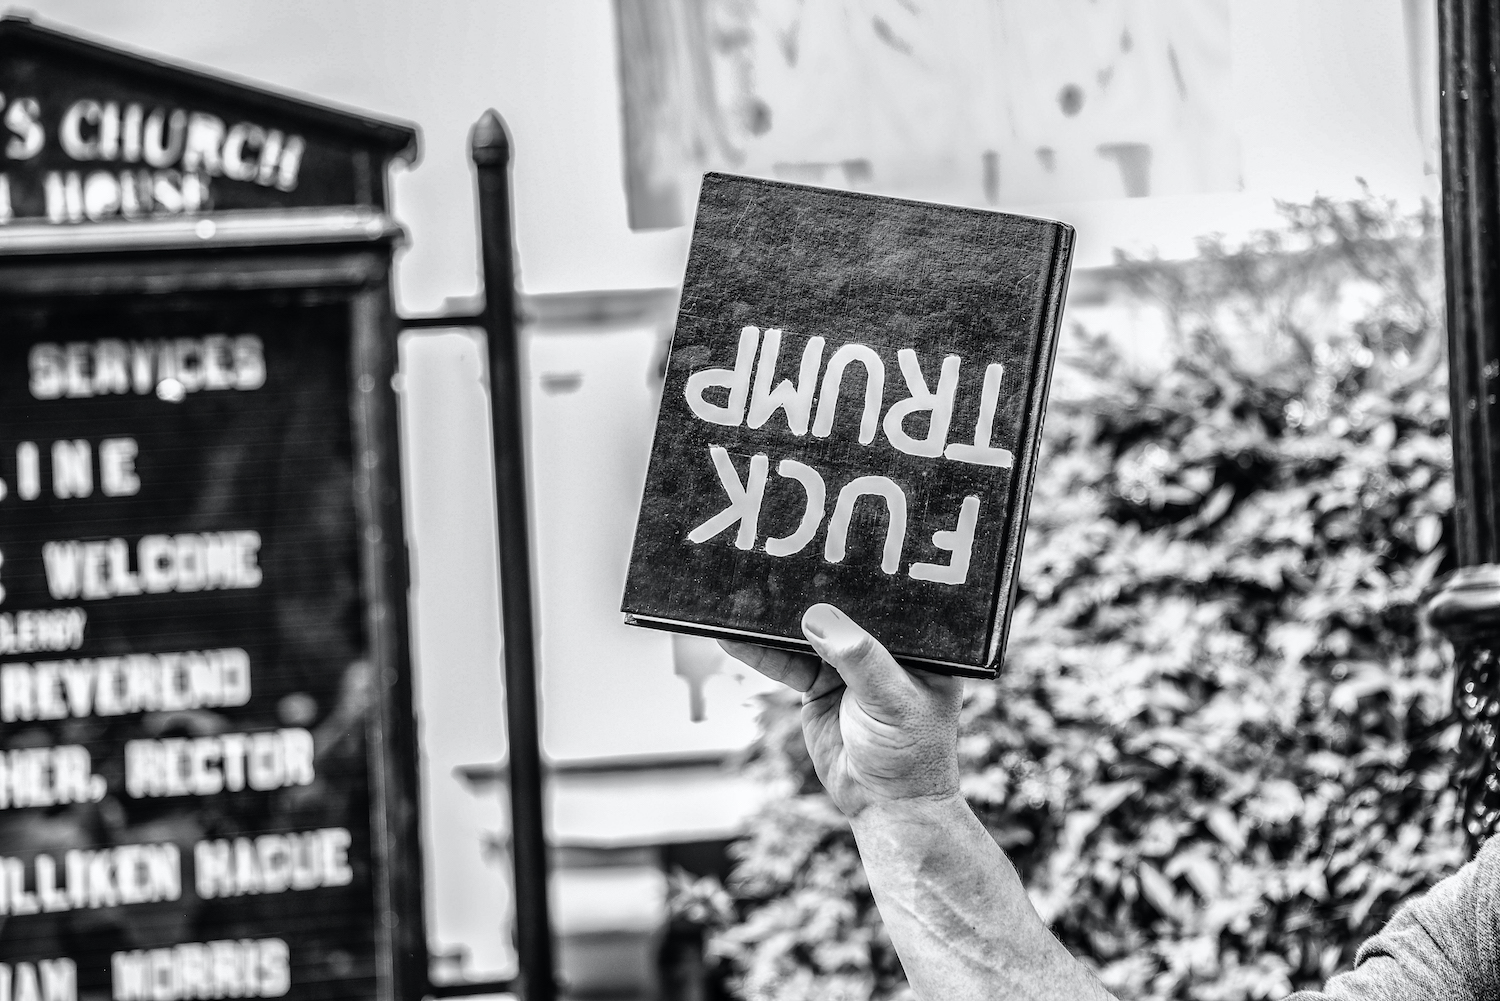 'S CHURCH
HOUSE
SERVICES
INE
WELCOME
REVEREND
HER, RECTOR
LLIKEN HAGUE
NORRIS
FUCK
TRUMP